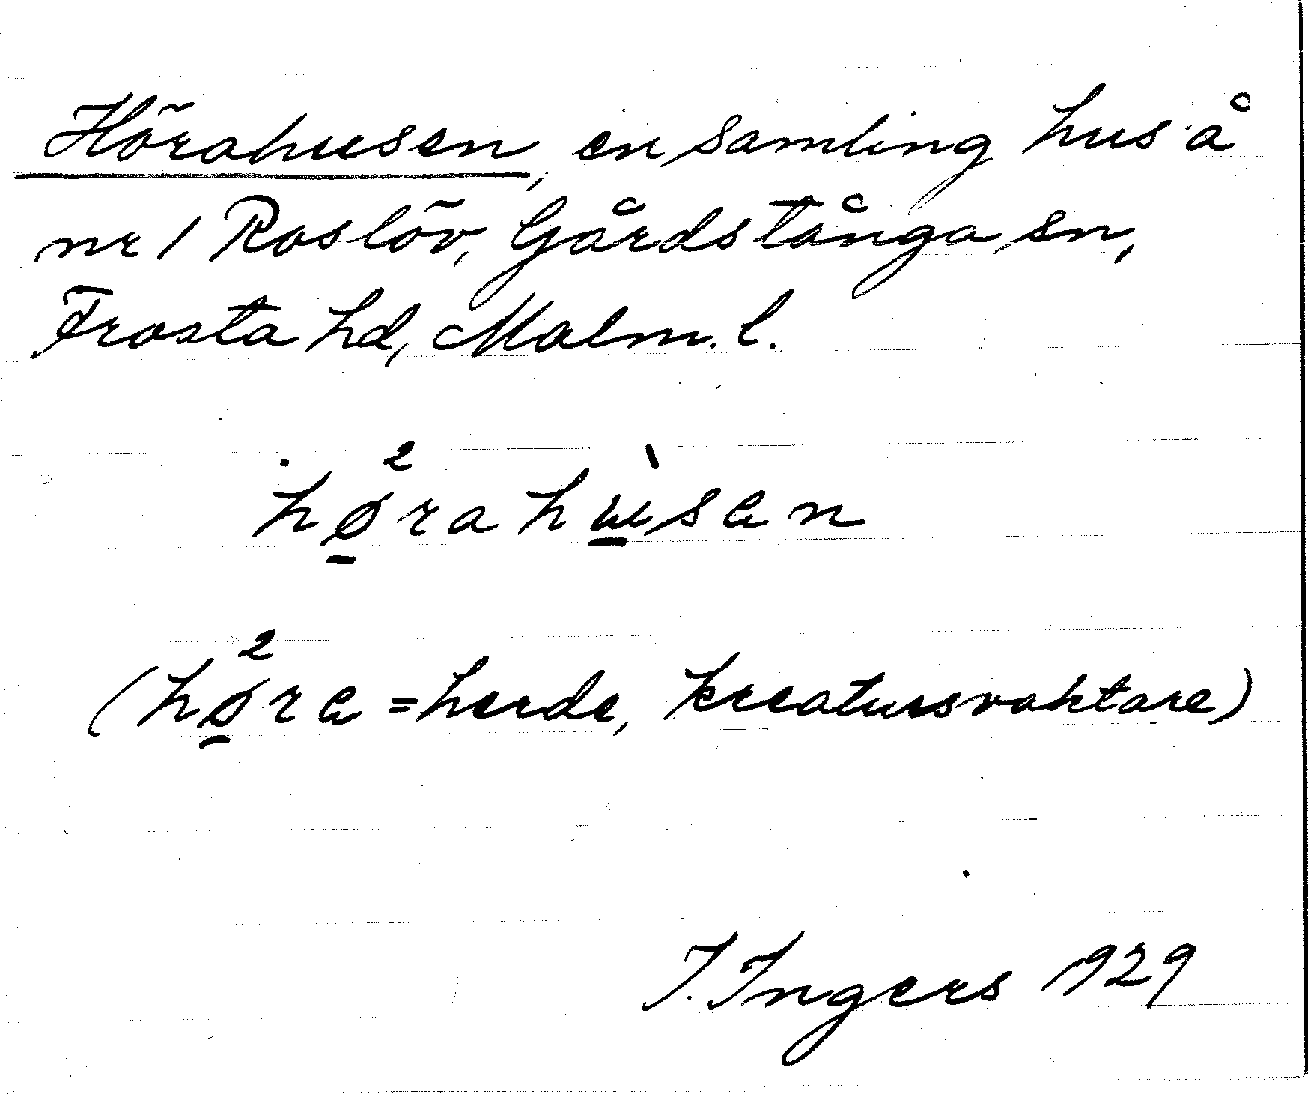 Hörahusen, en samling hus å
nr 1 Roslöv, Gårdstånga sn,
Frosta hd, Malm. l.
hø̠²rahẁ̠sen
(hø̠²ra = herde, kreatursvaktare)
I. Ingers 1929